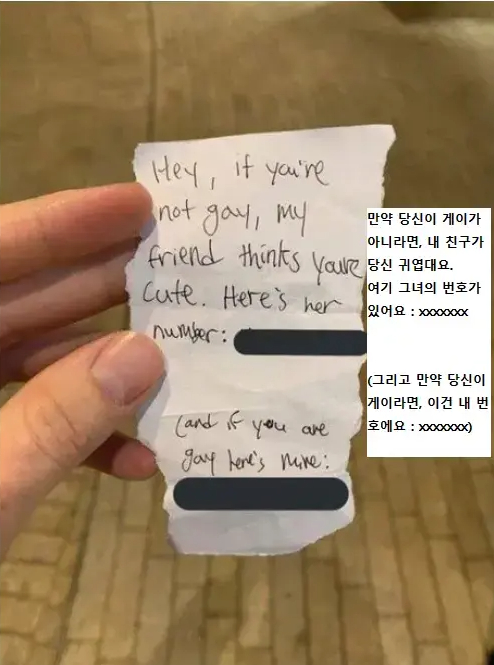 Hey, if you're
not gay, my
friend thinks you're
cute. Here's her
number:
(and if you are
gay here's mine:
만약 당신이 게이가
아니라면, 내 친구가
당신 귀엽대요.
여기 그녀의 번호가
있어요 : xxxxxxx
(그리고 만약 당신이
게이라면, 이건 내 번
호에요 : xxxxxxx)